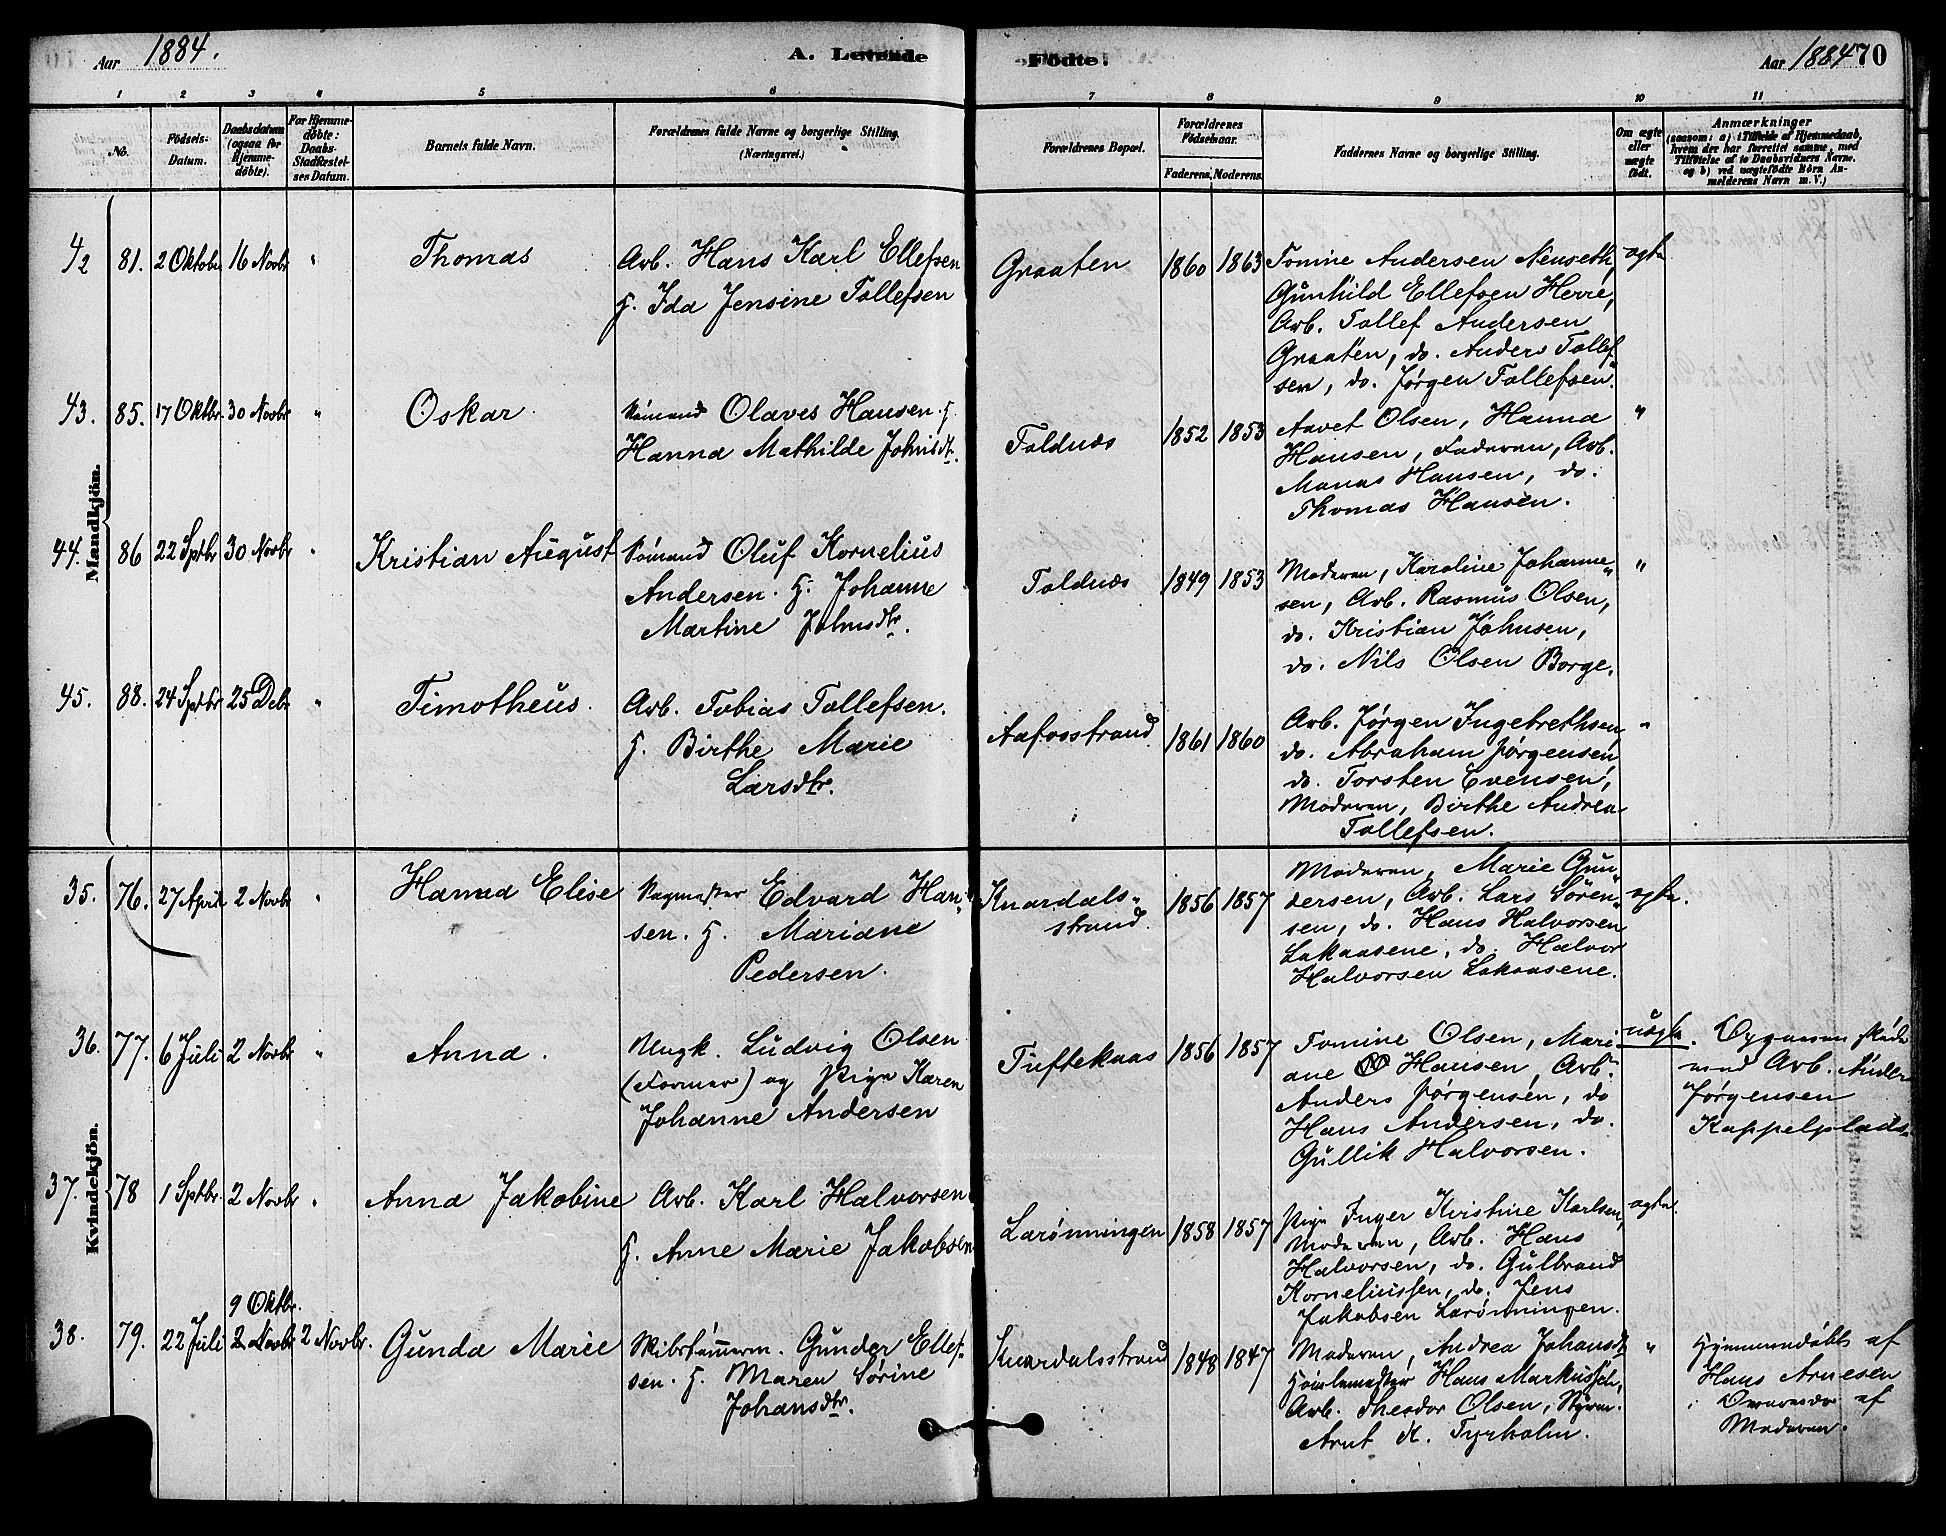 Aar 1884. A. Levende Fødte. Aar 1884 70
1 2 3 4 5 6 7 8 9 10 11
No.
Fødsels-Datum.
Daabsdatum (ogsaa for Hjemme-døbte).
For Hjemme-døbte: Daabs-Stadfæstel-ses Datum.
Barnets fulde Navn.
Forældrenes fulde Navne og borgerlige Stilling.
(Næringsvei.)
Forældrenes Bopæl.
Forældrenes Fødselsaar.
Faderens. Moderens.
Faddernes Navne og borgerlige Stilling.
Om ægte eller uægte født.
Anmærkninger
(saasom: a) i Tilfælde af Hjemmedaab,
hvem der har forrettet samme, med
Tilføielse af to Daabsvidners Navne.
og b) ved uægtefødte Børn An-
melderens Navn m. V.)
Mandkjön.
42 81. 2 Oktober 16 Novbr " Thomas
Arb. Hans Karl Ellefsen
H. Ida Jensine Tollefsen
Graaten 1860 1863
Tomine Andersen Nenseth,
Gunhild Ellefsen Herre,
Arb. Tollef Andersen
Graaten, do. Anders Tollef-
sen, do. Jørgen Tollefsen.
ægte
43. 85. 17 Oktbr 30 Novbr " Oskar.
Sømand Olaves Hansen. H.
Hanna Mathilde Johnsdtr.
Toldnæs 1852 1853
Aavet Olsen, Hanna
Hansen, Faderen, Arb.
Manas Hansen, do.
Thomas Hansen.
"
44. 86 22 Sptbr 30 Novbr " Kristian August
Sømand Oluf Kornelius
Andersen. H. Johanne
Martine Johnsdtr.
Toldnæs 1849 1853
Moderen, Karoline Johanne-
sen, Arb. Rasmus Olsen,
do. Kristian Johnsen,
do. Nils Olsen Borge.
"
45. 88. 24 Sptbr 25 Debr " Timotheus.
Arb. Tobias Tollefsen.
H. Birthe Marie
Larsdtr.
Aafosstrand 1861 1860
Arb. Jørgen Ingebrethsen,
do. Abraham Jørgensen,
do. Torsten Evensen,
Moderen, Birthe Andrea
Tollefsen.
"
Kvindekjön.
35. 76. 27 April 2 Novbr " Hanna Elise
Bagmester Edvard Han-
sen. H. Mariane
Pedersen.
Knardals-
strand. 1856 1857
Moderen, Marie Gun-
dersen, Arb. Lars Søren-
sen, do. Hans Halvorsen
Lakaasene, do. Halvor
Halvorsen Lakaasene.
ægte.
36. 77. 6 Juli 2 Novbr " Anna.
Ungk. Ludvig Olsen
(Former) og Pige Karen
Johanne Andersen
Tuftekaas 1856 1857
Tomine Olsen, Mari-
ane Hansen, Arb.
Anders Jørgensen, do
Hans Andersen, do.
Gullik Halvorsen.
uægte.
med Arb. Anders
Jørgensen
Kappelplads.
37. 78 1 Sptbr. 2 Novbr " Anna Jakobine
Arb. Karl Halvorsen
H. Anne Marie Jakobsen
Larønningen 1858 1857
Pige Inger Kristine Karlsen,
Moderen, Arb. Hans
Halvorsen, do. Gulbrand
Korneliussen, do. Jens
Jakobsen Larønningen.
ægte.
38. 79. 22 Juli 9 Oktbr. 2 Novbr 2 Novbr. Gunda Marie
Skibstømmerm. Gunder Ellef-
sen. H. Maren Sørine
Johansdtr.
Knardalsstrand 1848 1847
Moderen, Andrea Johansdtr
Hans Markussen,
Arb. Theodor Olsen, Styrm.
Arnt K. Tyrholm.
"
Hjemmedøbt af
Hans Arnesen
af
Moderen.